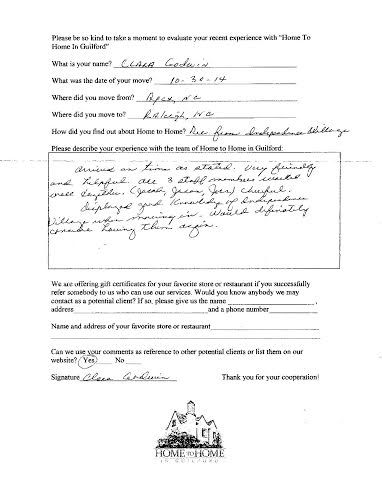 Please be so kind to take a moment to evaluate your recent experience with "Home To
Home In Guilford"
What is your name? Clara Godwin
What was the date of your move? 10-30-14
Where did you move from? Apex, NC
Where did you move to? Raleigh, NC
How did you find out about Home to Home? Rec from Independence Village
Please describe your experience with the team of Home to Home in Guilford:
arrived on time as stated. Very friendly
and helpful. All 3 staff members worked
well together. (Jacob, Jesse, Jess) cheerful.
Displayed good Knowledge of Independence
Village when moving in. Would definately
consider having them again.
We are offering gift certificates for your favorite store or restaurant if you successfully
refer somebody to us who can use our services. Would you know anybody we may
contact as a potential client? If so, please give us the name ,
address and a phone number
Name and address of your favorite store or restaurant
Can we use your comments as reference to other potential clients or list them on our
website? Yes No
Signature Clara Godwin Thank you for your cooperation!
HOME TO HOME
IN GUILFORD